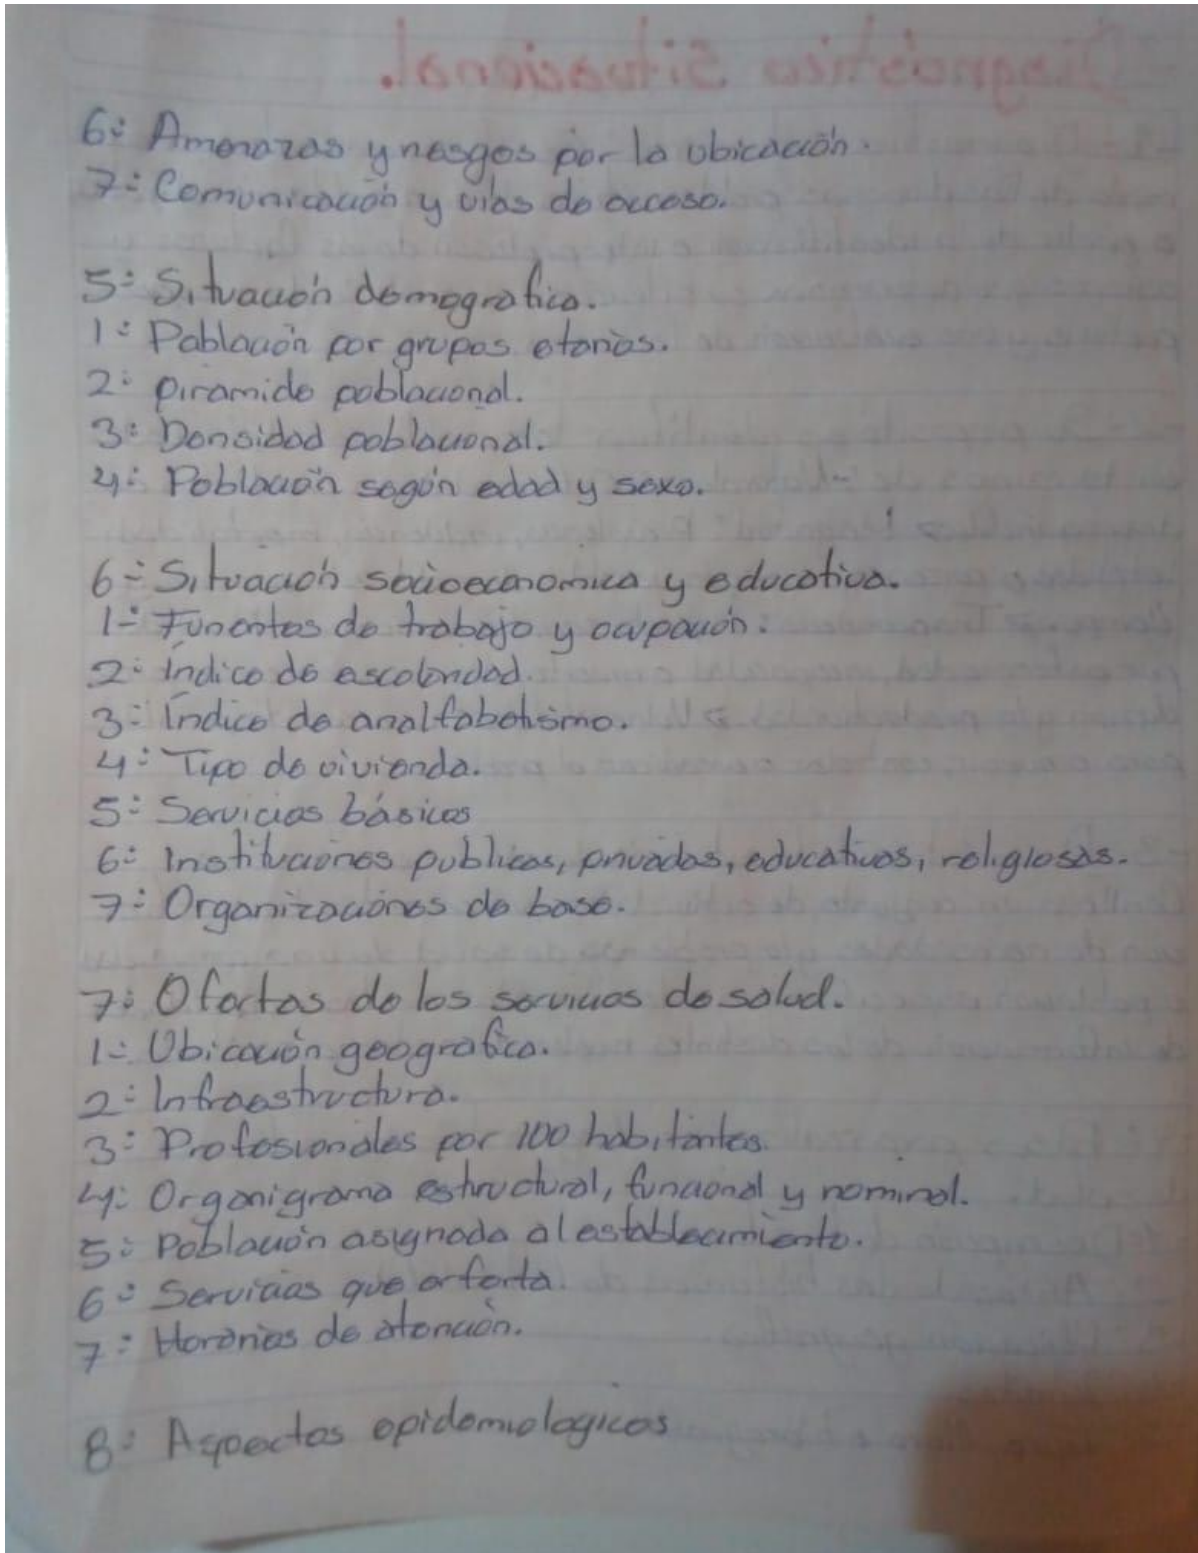 6: Amenazas y riesgos por la ubicación.
7: Comunicación y vías de acceso.
5: Situación demografica.
1: Población por grupos etarios.
2: piramide poblacional.
3: Densidad poblacional.
4: Población según edad y sexo.
6: Situación socioeconomica y educativa.
1: Funentes de trabajo y ocupación.
2: Índice de escolaridad.
3: Índice de analfabetismo.
4: Tipo de vivienda.
5: Servicios básicos
6: Instituciones publicas, privadas, educativas, religiosas.
7: Organizaciones de base.
7: Ofertas de los servicios de salud.
1: Ubicación geografica.
2: Infraestructura.
3: Profesionales por 100 habitantes.
4: Organigrama estructural, funcional y nominal.
5: Población asignada al establecimiento.
6: Servicios que orferta.
7: Horarios de atención.
8: Aspectos epidemiologicos